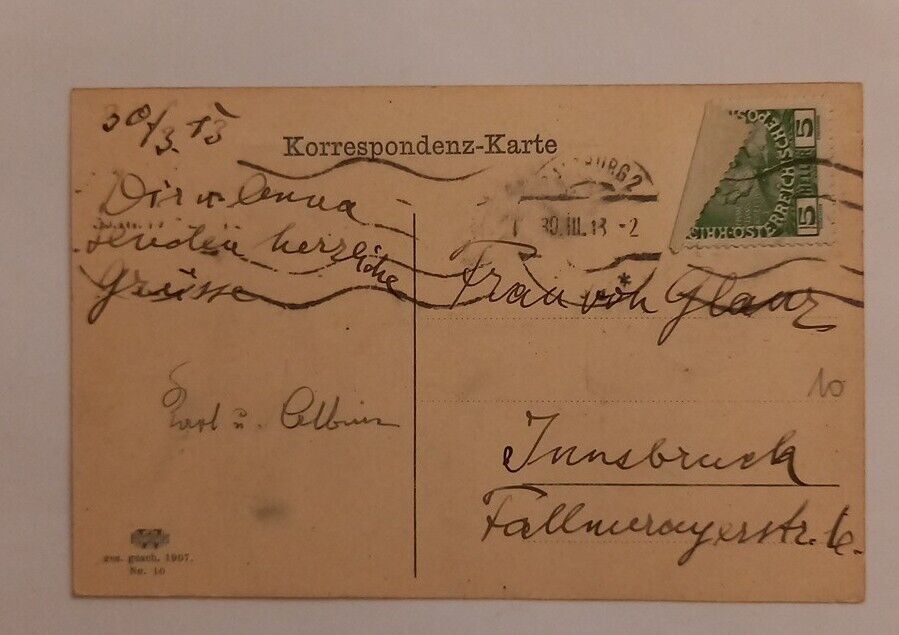 30/3. 13
Korrespondenz-Karte
Dir u. Anna
senden herzliche
Grüsse
Karl u. Albin
BURG 2
30.III.13 -2
5 HELLER 5
Frau von Glanz
10
Innsbruck
Fallmerayerstr. 6.
ges. gesch. 1907.
No. 10